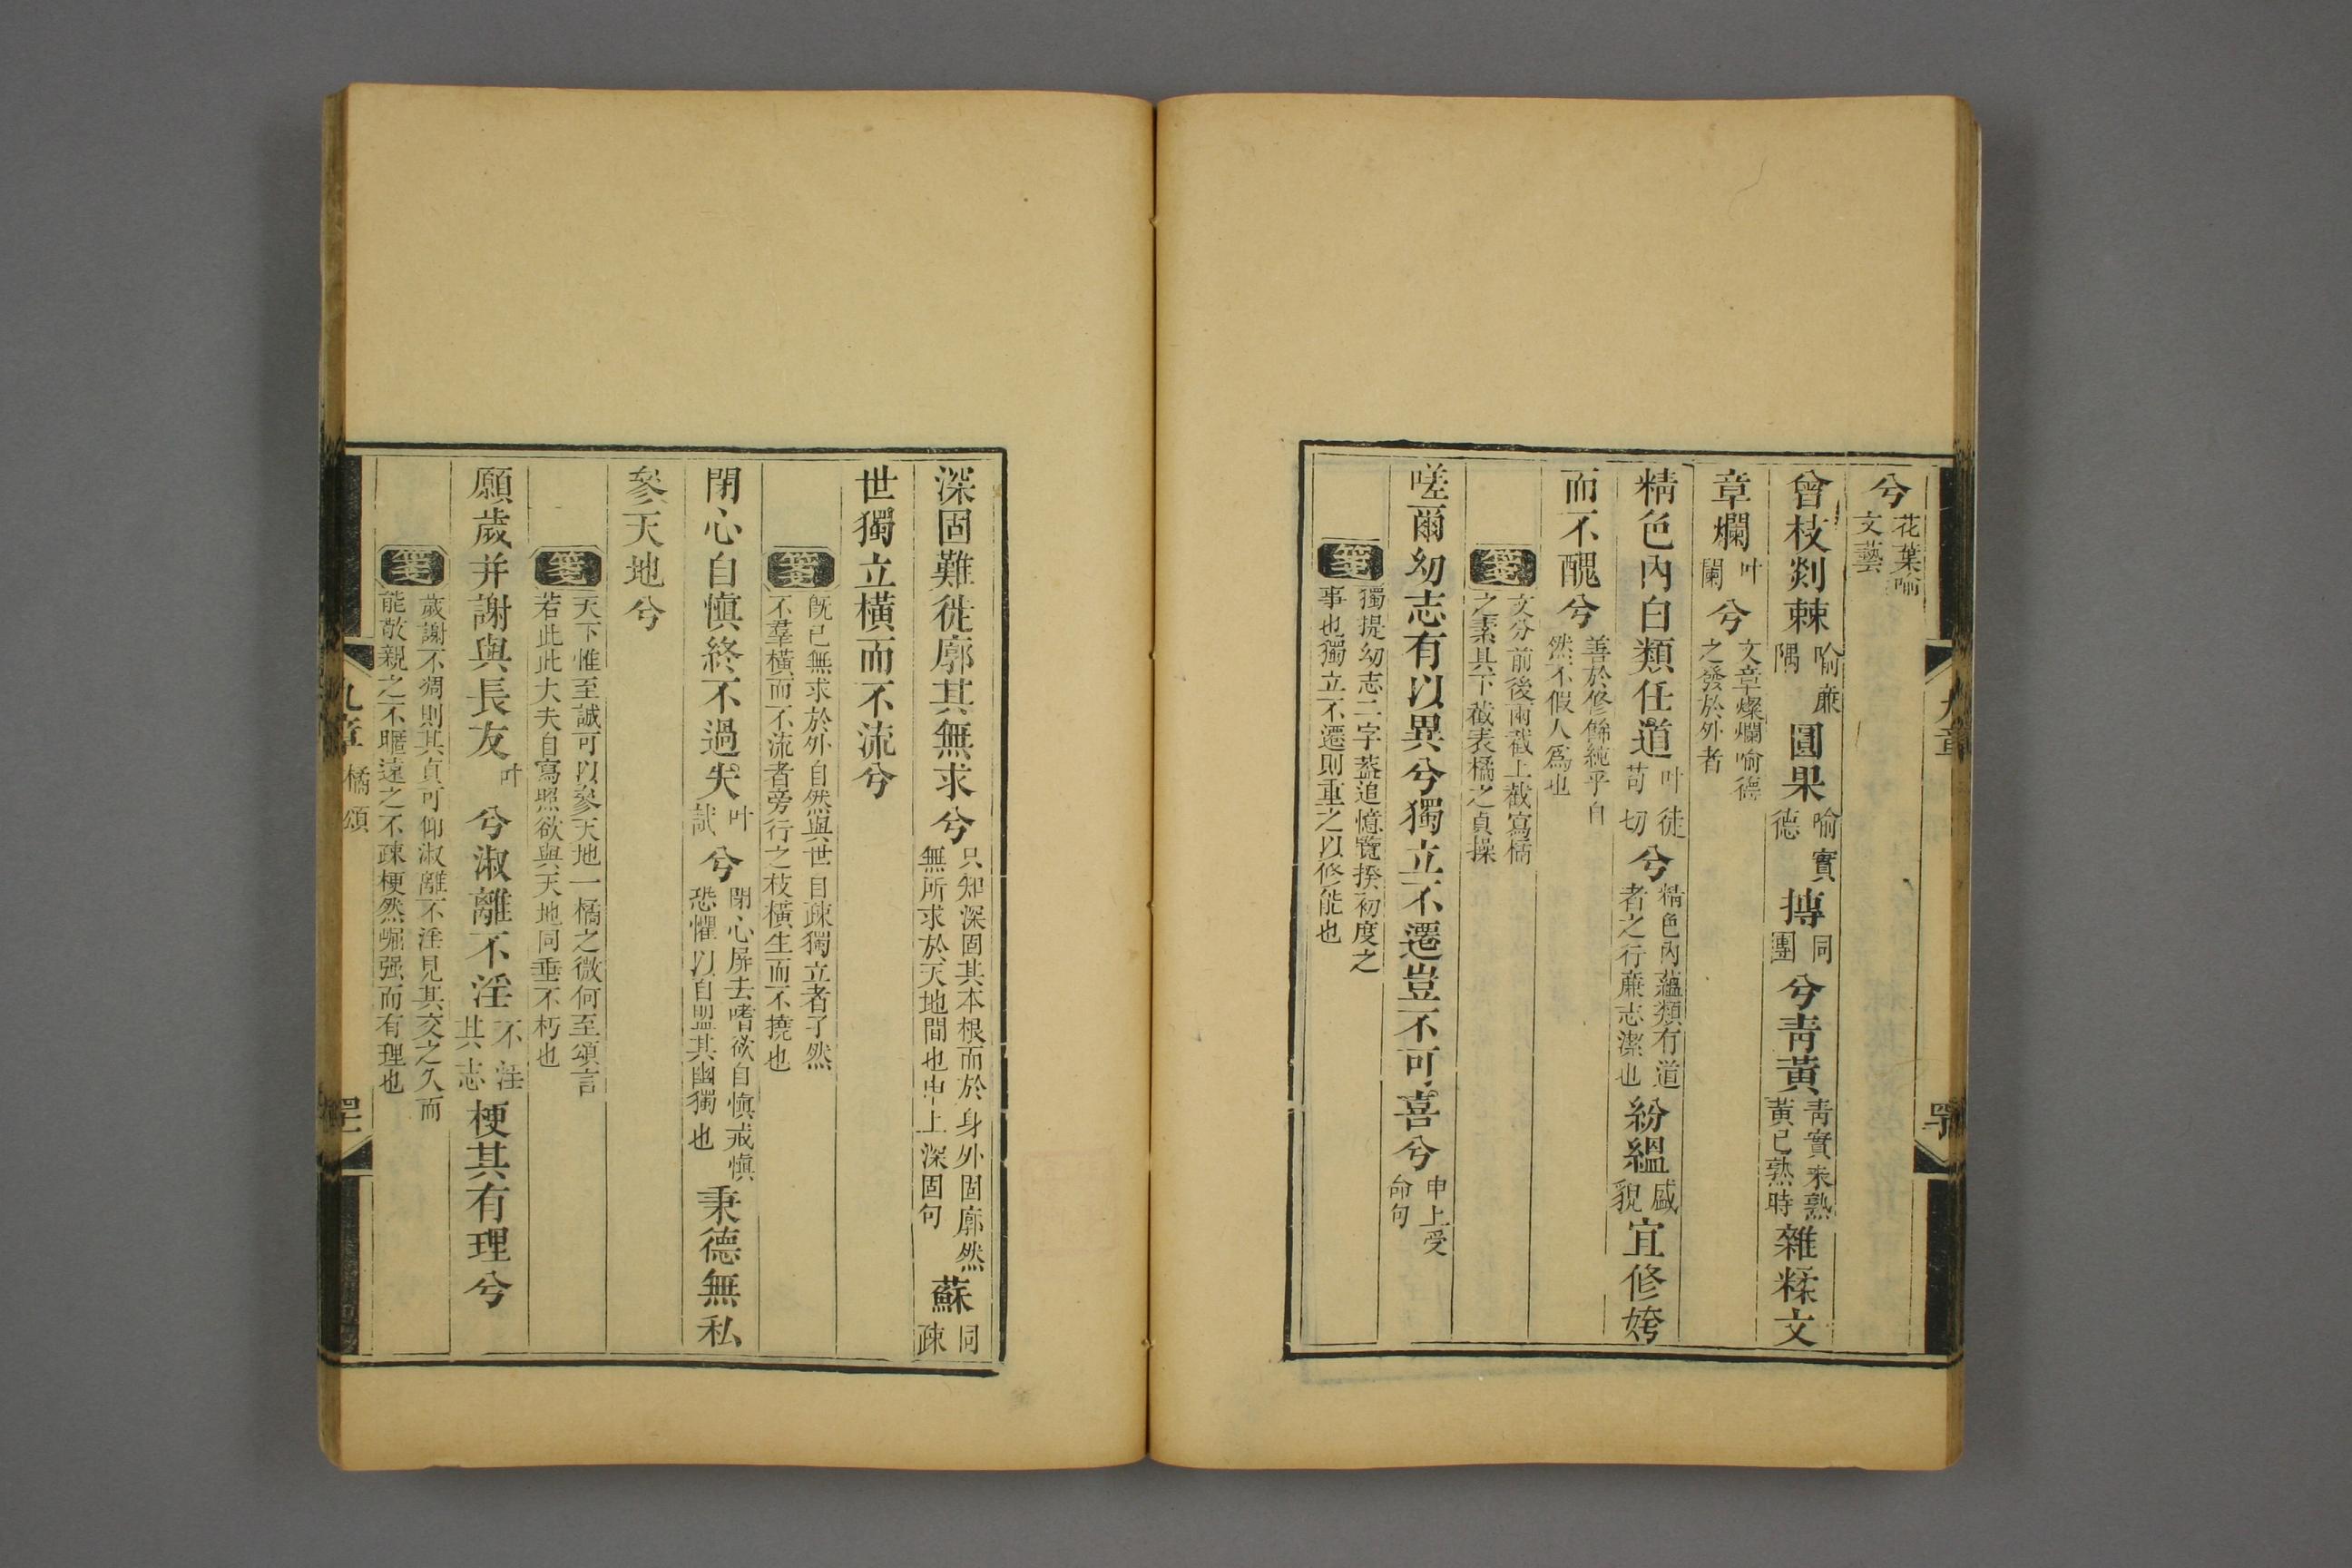 兮花葉喻文藝
曾枝剡棘喻廉隅圓果喻實德摶同團兮青黃青實未熟黃已熟時雜糅文
章爛叶闌兮文章燦爛喻德之發於外者
精色內白類任道叶徒苟切兮精色內蘊類有道者之行廉志潔也紛緼盛貌宜修姱
而不醜兮善於修餙純乎自然不假人爲也
箋文分前後兩截上截寫橘之素具下截表橘之貞操
嗟爾幼志有以異兮獨立不遷豈不可喜兮申上受命句
箋獨提幼志二字葢追憶覽揆初度之事也獨立不遷則重之以修能也
九章
深固難徙廓其無求兮只知深固其本根而於身外固廓然無所求於天地間也申上深固句蘇同疎
世獨立橫而不流兮
箋旣已無求於外自然與世日疎獨立者孑然不羣橫而不流者旁行之枝橫生而不撓也
閉心自愼終不過失叶試兮閉心屏去嗜欲自愼戒愼恐懼以自盟其幽獨也秉德無私
參天地兮
箋天下惟至誠可以參天地一橘之微何至頌言若此此大夫自寫照欲與天地同垂不朽也
願歲并謝與長友叶兮淑離不淫不淫其志梗其有理兮
箋歲謝不凋則其貞可仰淑離不淫見其交之久而能敬親之不暱遠之不疎梗然崛强而有理也
九章 橘頌